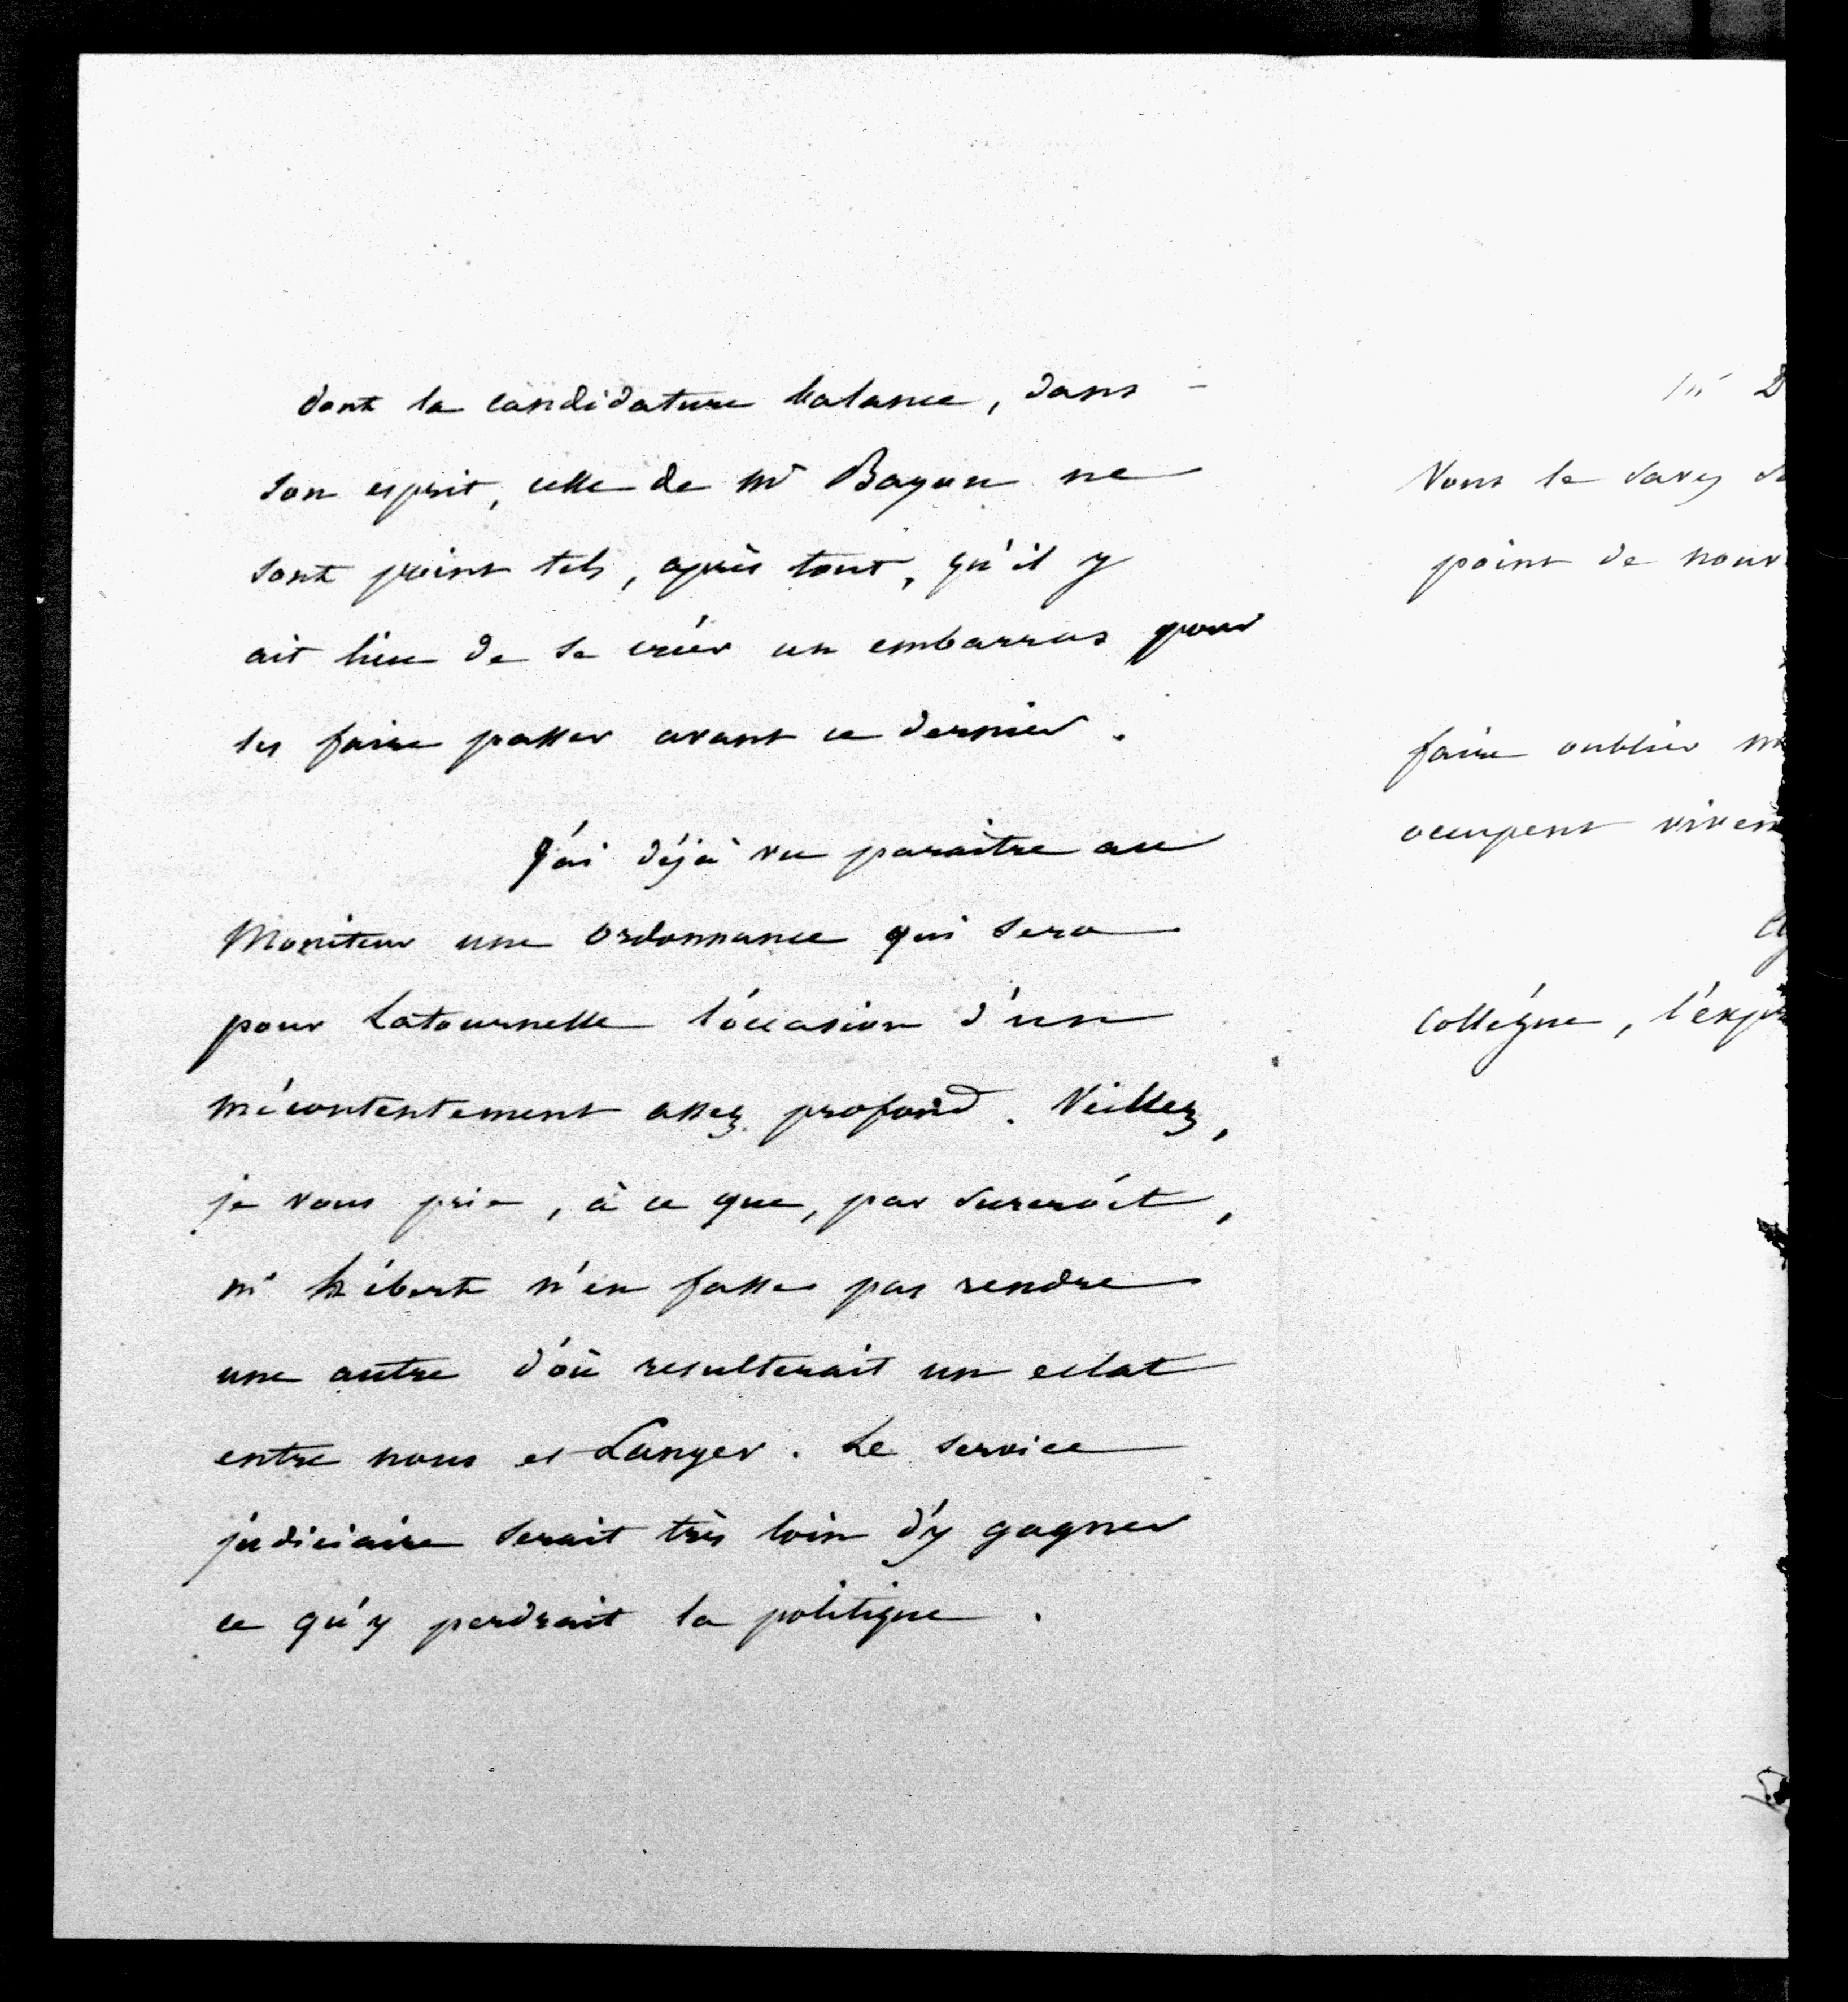 dont la candidature balance, dans
son esprit, celle de Mr Bayeux ne
sont point tels, après tout, qu'il y
ait lieu de se créer un embarras pour
les faire passer avant ce dernier.
J'ai déjà vu paraitre au
Moniteur une ordonnance qui sera
pour Latournelle l'occasion d'un
mécontentement assez profond. Veillez,
je vous prie, à ce que, par surcroit,
mr hébert n'en fasse pas rendre
une autre d'où resulterait un eclat
entre nous et Langer. Le service
judiciaire serait très loin d'y gagner
ce qu'y perdrait la politique.
Vous le savez
point de nouv
faire oublier
occupent vivem
Collégue, l'expr